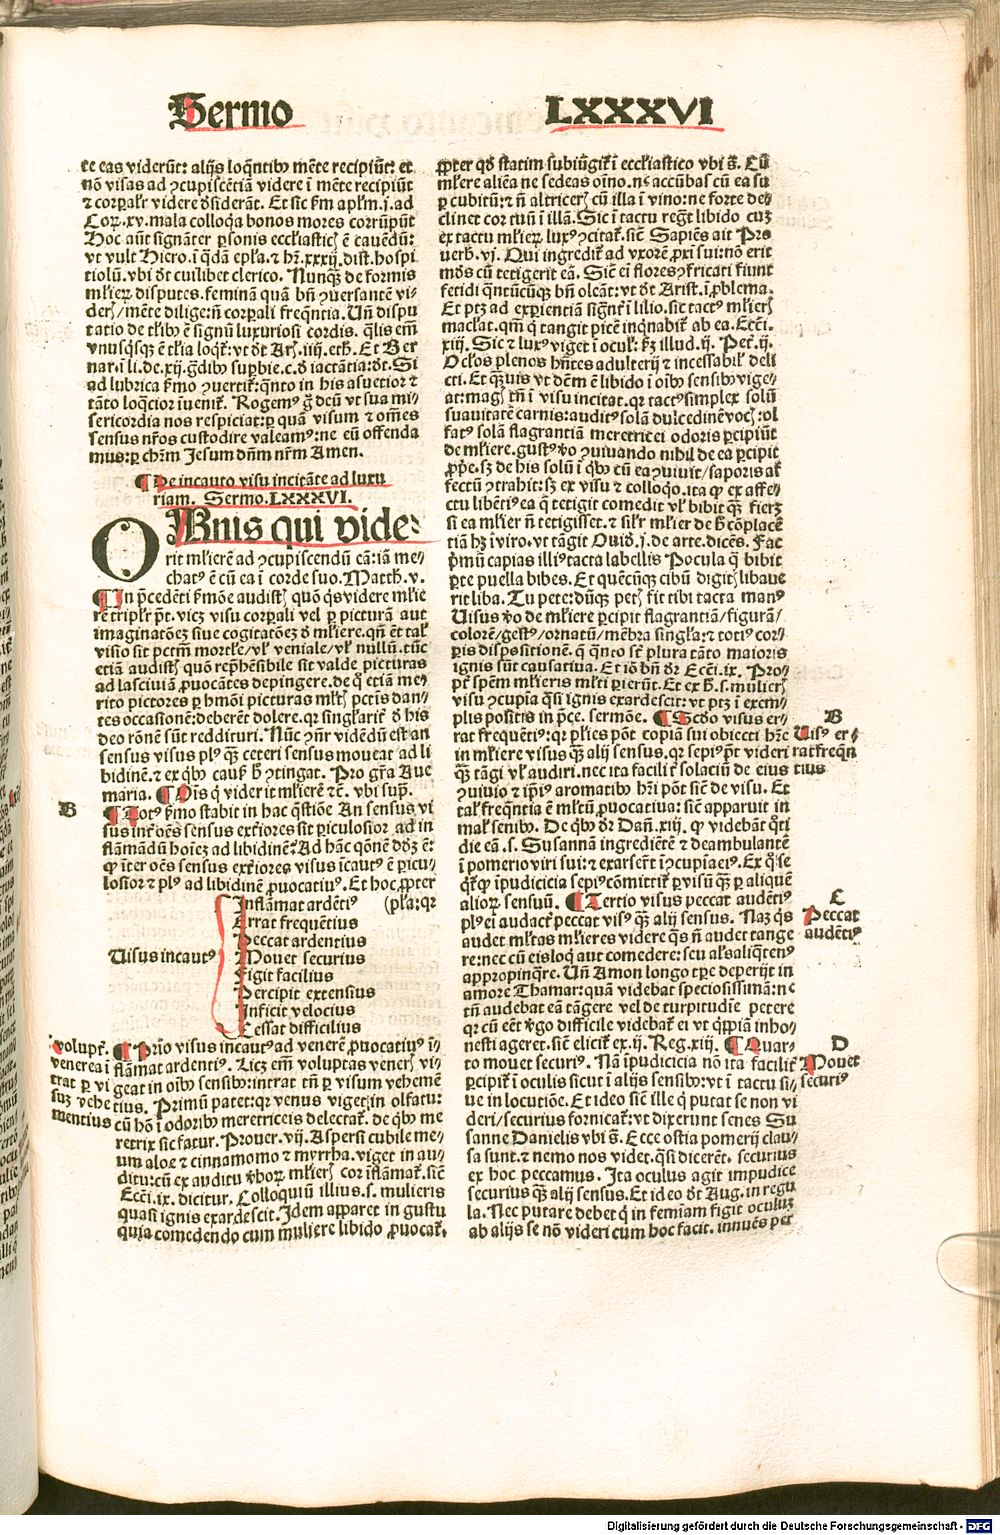 Sermo LXXXVI
te eas viderūt: alijs loq̄ntibꝰ mēte recipiūt: et
nō visas ad ꝯcupiscētiā videre i mēte recipiūt
⁊ corꝑalr̄ videre ꝺsiderāt. Et sic ẜm apl̄m .j. ad
Coꝝ. xv. mala colloq̄a bonos mores corrūpūt
Hoc aūt signāter ꝑsonis ecclīasticꝭ ē cauēdū:
vt vult Hiero. i q̄dā epl̄a. ⁊ hr̄. xxxij. dist. hospi
tiolū. vbi ꝺt cuilibet clerico. Nunꝗ̄ de formis
ml̄ieꝝ disputes. feminā quā bn̄ ꝯuersantē vi-
derꝭ / mēte dilige: nō corꝑali freq̄ntia. Un̄ dispu
tatio de tl̄ibꝰ ē signū luxuriosi cordis. q̄lis em̄
vnusq̄sꝗ ē tl̄ia loq̄t̄: vt ꝺt Arꝭ. iiij. eth. Et Ber
nar. i li. de .xij. ḡdibꝰ suꝑbie. c. ꝺ iactātia: ꝺt. Si
ad lubrica ẜmo ꝯuertit̄: q̄nto in his asuetior ⁊
tāto loq̄cior iuenit̄. Rogemꝰ ḡ deū vt sua mi-
sericordia nos respiciat: ꝑ quā visum ⁊ om̄es
sensus nr̄os custodire valeamꝰ: ne eū offenda
mus: ꝑ chr̄m Jesum dn̄m nr̄m Amen.
¶ De incauto visu incitāte ad luxu
riam. Sermo. LXXXVI.
OMnis qui vide-
rit ml̄ierē ad ꝯcupiscendū eā: iā me-
chatꝰ ē cū ea i corde suo. Matth. v.
¶ In p̄cedēti ẜmōe audistꝭ quō q̄s videre ml̄ie
rē triplr̄ pt̄. vicꝫ visu corꝑali vel ꝑ picturā aut
imaginatōeꝫ siue cogitatōeꝫ ꝺ ml̄iere. qn̄ et tal̄
visio sit pctm̄ mortl̄e / vl̄ veniale / vl̄ nullū. tūc
etiā audistꝭ quō rep̄hēsibile sit valde picturas
ad lasciuiā ꝓuocātes depingere. de q̄ etiā me-
rito pictores ꝑ hmōi picturas ml̄tꝭ pctīs dan-
tes occasionē: deberēt dolere. qr singl̄arit̄ ꝺ his
deo rōnē sūt reddituri. Nūc ꝯn̄r vidēdū est an
sensus visus plꝰ ꝗ̄ ceteri sensus moueat ad li
bidinē. ⁊ ex q̄bꝰ caus̄ h̄ ꝯtingat. Pro gr̄a Aue
maria. ¶ Oīs q̄ viderit ml̄ierē ⁊c̄. vbi sup̄.
B ¶ Totꝰ ẜmo stabit in hac q̄stiōe An sensus vi
sus int̄ oēs sensus exteriores sit ꝑiculosior ad in
flāmādū hoiēꝫ ad libidinē? Ad hāc q̄onē ꝺōꝫ ē:
ꝙ iter oēs sensus exteriores visus icautꝰ ē ꝑicu-
losior ⁊ plꝰ ad libidinē ꝓuocatiuꝰ. Et hoc ꝓpter
Inflāmat ardētiꝰ (pl̄a: qr
Errat frequētius
Peccat ardentius
Uisus incautꝰ Mouet securius
Figit facilius
Percipit extensius
Inficit velocius
Cessat difficilius
volupt̄.
venerea i
trat ꝑ vi
suꝫ vehe
mentius
¶ Prīo visus incautꝰ ad venerē ꝓuocatiuꝰ ī-
flāmat ardentiꝰ. Licꝫ em̄ voluptas venerꝭ vi-
geat in oībꝰ sensibꝰ: intrat tn̄ ꝑ visum vehemē
tius. Primū patet: qr venus viget: in olfatu:
cū hō i odoribꝰ meretriceis delectat̄. de q̄bꝰ me
retrix sic fatur. Prouer. vij. Aspersi cubile me-
um aloe ⁊ cinnamomo ⁊ myrrha. viget in au-
ditu: cū ex auditu ꝟboꝝ ml̄ierꝭ cor iflāmat̄. sic̄
Ecci. ix. dicitur. Colloquiū illius. s. mulieris
quasi ignis exardescit. Idem apparet in gustu
quia comedendo cum muliere libido ꝓuocat̄.
ꝓpter qꝺ statim subiūgit̄ i ecclīastico vbi s̄. Cū
ml̄iere aliēa ne sedeas oīno. nec accūbas cū ea su
ꝑ cubitū: ⁊ n̄ altricerꝭ cū illa i vino: ne forte de-
clinet cor tuū i illā. Sic i tactu regt̄ libido cuꝫ
ex tactu ml̄ieꝝ luxꝰ ꝯcitat̄. sic̄ Sapiēs ait Pro
uerb. vj. Qui ingredit̄ ad vxorē ꝓxi sui: nō erit
mūs cū tetigerit eā. Sic̄ ei flores ꝯfricati fiunt
fetidi q̄ntūcūꝗ bn̄ oleāt: vt ꝺt Arist. i ꝓblema.
Et ptꝫ ad exꝑientiā signt̄ i lilio. sic tactꝰ ml̄ierꝭ
maclat. qm̄ q̄ tangit picē inq̄nabit̄ ab ea. Ecci.
xiij. Sic ⁊ luxꝰ viget i ocul̄. ẜꝫ illud. ij. Pet̄. ij.
Oclōs plenos hn̄tes adulterij ⁊ incessabil̄ deli
cti. Et ꝗ̄uis vt dc̄m ē libido i oībꝰ sensibꝰ vige-
at: magꝭ tn̄ i visu incitat. qr tactꝰ simplex solū
suauitatē carnis: auditꝰ solā dulcedinē vocꝭ: ol
fatꝰ solā flagrantiā meretricei odoris ꝑcipiūt
de ml̄iere. gustꝰ ꝟo ꝯuiuando nihil de ea ꝑcipit
ꝓpe. sꝫ de his solū i q̄bꝰ cū ea ꝯuiuit / saporis af
fectū ꝯtrahit: sꝫ ex visu ⁊ colloq̄o. ita ꝙ ex affe-
ctu libētiꝰ ea q̄ tetigit comedit vl̄ bibit ꝗ̄ fierꝫ
si ea ml̄ier n̄ tetigisset. ⁊ sil̄r ml̄ier de h̄ cōplacē
tiā hꝫ i viro. vt tāgit Ouid. j. de arte. dicēs. Fac
p̄mū capias illiꝰ tacta labellis Pocula q̄ bibit
ꝑte puella bibes. Et quēcūꝗ cibū digitꝭ libaue
rit liba. Tu pete: dūꝗ petꝭ fit tibi tacta manꝰ
Uisus ꝟo de ml̄iere ꝑcipit flagrantiā / figurā /
colorē / gestꝰ / ornatū / mēbra singl̄a: ⁊ totiꝰ cor-
ꝑis dispositionē. q̄ q̄nto sc̄ plura tāto maioris
ignis sūt causatiua. Et iō bn̄ ꝺr Ecci. ix. Pro-
pt̄ spēm ml̄ieris ml̄ti ꝑierūt. Et ex h̄. s. mulierꝭ
visu ꝯcupīa q̄si ignis exardescit: vt ptꝫ i exem-
plis positis in p̄ce. sermōe. ¶ Scd̄o visus er-
rat frequētiꝰ: qr pl̄ies pōt copiā sui obiecti hr̄e
in ml̄iere visus ꝗ̄ alij sensus. qr sepiꝰ pt̄ videri
ꝗ̄ tāgi vl̄ audiri. nec ita facilit̄ solaciū de eius
ꝯuiuio ⁊ ip̄iꝰ aromatibꝰ hr̄i pōt sic̄ de visu. Et
tal̄ freq̄ntia ē ml̄tū ꝓuocatiua: sic̄ apparuit in
mal̄ senibꝰ. De q̄bꝰ ꝺr Dan̄. xiij. ꝙ videbāt q̄ti
die eā. s. Susannā ingrediētē ⁊ deambulantē
i pomerio viri sui: ⁊ exarserūt i ꝯcupīa eiꝰ. Ex q̄ se
q̄t̄ ꝙ ipudicicia sepiꝰ cōmittit̄ ꝑ visū ꝗ̄ ꝑ aliquē
alioꝝ sensuū. ¶ Tertio visus peccat audētiꝰ
plꝰ ei audact̄ peccat visꝰ ꝗ̄ alij sensus. Naꝫ q̄s
audet ml̄tas ml̄ieres videre q̄s n̄ audet tange
re: nec cū eis loq̄ aut comedere: seu al̄s aliq̄tenꝰ
appropinq̄re. Un̄ Amon longo tp̄e deperijt in
amore Thamar: quā videbat speciosissimā: nec
tn̄ audebat eā tāgere vel de turpitudīe petere
qr cū eēt ꝟgo difficile videbat̄ ei vt q̄ppiā inho-
nesti ageret. sic̄ elicit̄ ex .ij. Reg. xiij. ¶ Quar-
to mouet securiꝰ. Nā ipudicicia nō ita facilit̄
ꝑcipit̄ i oculis sicut i alijs sensibꝰ: vt i tactu si-
ue in locutiōe. Et ideo sic̄ ille q̄ putat se non vi
deri / securius fornicat̄: vt dixerunt senes Su
sanne Danielis vbi s̄. Ecce ostia pomerij clau-
sa sunt. ⁊ nemo nos videt. q̄si dicerēt. securius
ex hoc peccamus. Ita oculus agit impudice
securius ꝗ̄ alij sensus. Et ideo ꝺt Aug. in regu
la. Nec putare debet q̄ in femīam figit oculuꝫ
ab alijs se nō videri cum hoc facit. inuēs ꝑ
B
Uisꝰ er-
rat freq̄n
tius
C
Peccat
audētiꝰ
D
Mouet
securiꝰ
Digitalisierung gefördert durch die Deutsche Forschungsgemeinschaft - DFG